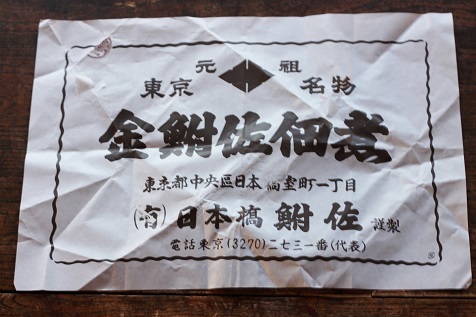 元祖
東京 名物
金鮒佐佃煮
東京都中央區日本橋室町一丁目
(有)日本橋 鮒佐 謹製
電話東京(3270)二七三一番(代表)